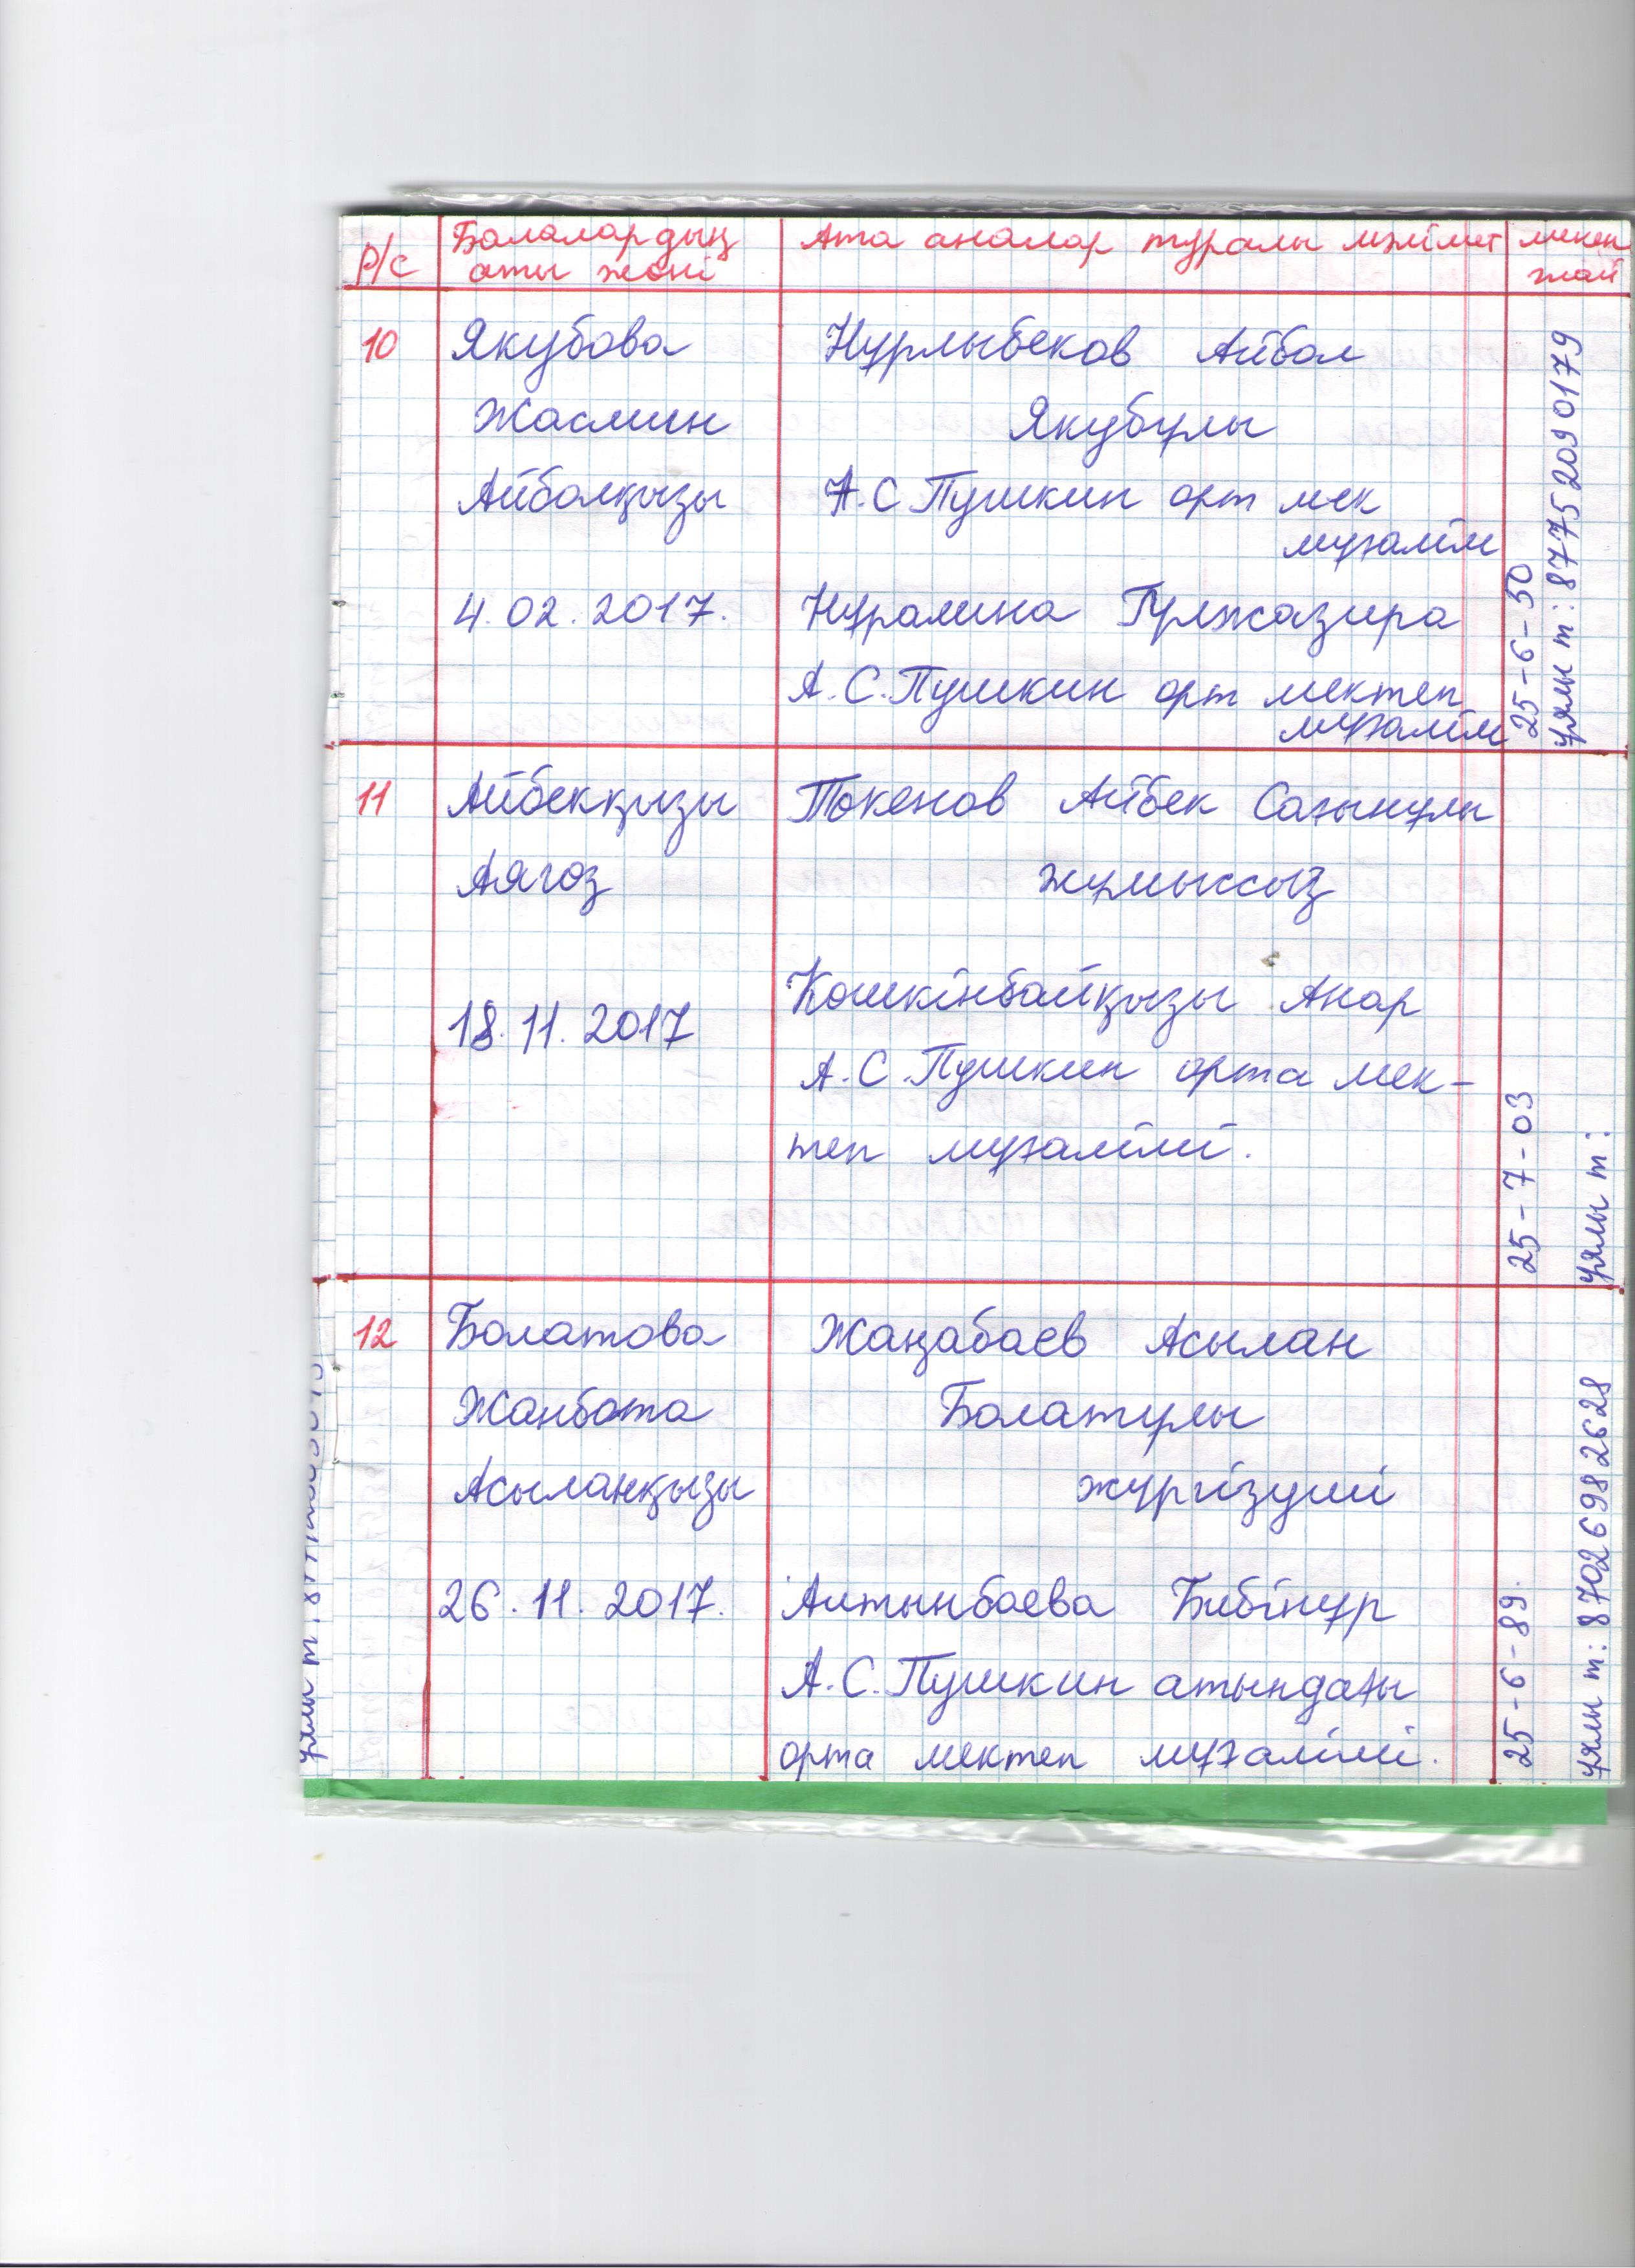 р/с
Балалардың
аты жөні
Ата аналар туралы мәлімет
мекен
жай
10
Якубова
Жасмин
Айболқызы
4. 02. 2017.
Нурлыбеков Айбол
Якубұлы
А.С Пушкин орт мек
мұғалім
Нұралина Гүлжазира
А.С.Пушкин орт мектеп
мұғалім
25-6-50
ұялы т: 87752090179
11
Айбекқызы
Аягөз
18. 11. 2017
Төкенов Айбек Сағынұлы
жұмыссыз
Көшкінбайқызы Анар
А.С.Пушкин орта мек-
теп мұғалімі.
25-7-03
ұялы т:
12
Болатова
Жанбота
Асыланқызы
26. 11. 2017.
Жаңабаев Асылан
Болатұлы
жүргізуші
Алтынбаева Бибінұр
А.С.Пушкин атындағы
орта мектеп мұғалімі.
25-6-89.
ұялы т: 87026982628
ұялы т: